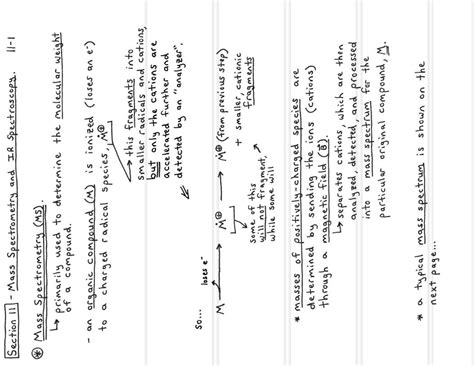 Section 11 - Mass Spectrometry and IR Spectroscopy. 11-1
⊛ Mass Spectrometry (MS).
↳ primarily used to determine the molecular weight
of a compound.
- an organic compound (M) is ionized (loses an e⁻)
to a charged radical species, M⊕
↳ this fragments into
smaller radicals and cations,
but only the cations are
accelerated further and
detected by an "analyzer".
So...
M —loses e⁻→ M⊕ → M⊕ (from previous step)
+ smaller, cationic
fragments
Some of this
will not fragment,
while some will
* masses of positively-charged species are
determined by sending the ions (cations)
through a magnetic field (B).
↳ separates cations, which are then
analyzed, detected, and processed
into a mass spectrum for the
particular original compound, M.
* a typical mass spectrum is shown on the
next page...